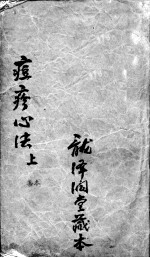 痘疹心法 上
龍澤洞堂藏本